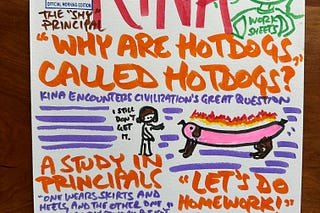 OFFICIAL MORNING EDITION
THE "SHY"
PRINCIPAL
KINA
WORK
SHEETS
"WHY ARE HOTDOGS,
CALLED HOTDOGS?
KINA ENCOUNTERS CIVILIZATION'S GREAT QUESTION
I STILL
DON'T
GET
IT.
A STUDY IN
PRINCIPALS
"ONE WEARS SKIRTS AND
HEELS, AND THE OTHER ONE
"LET'S DO
HOMEWORK!"